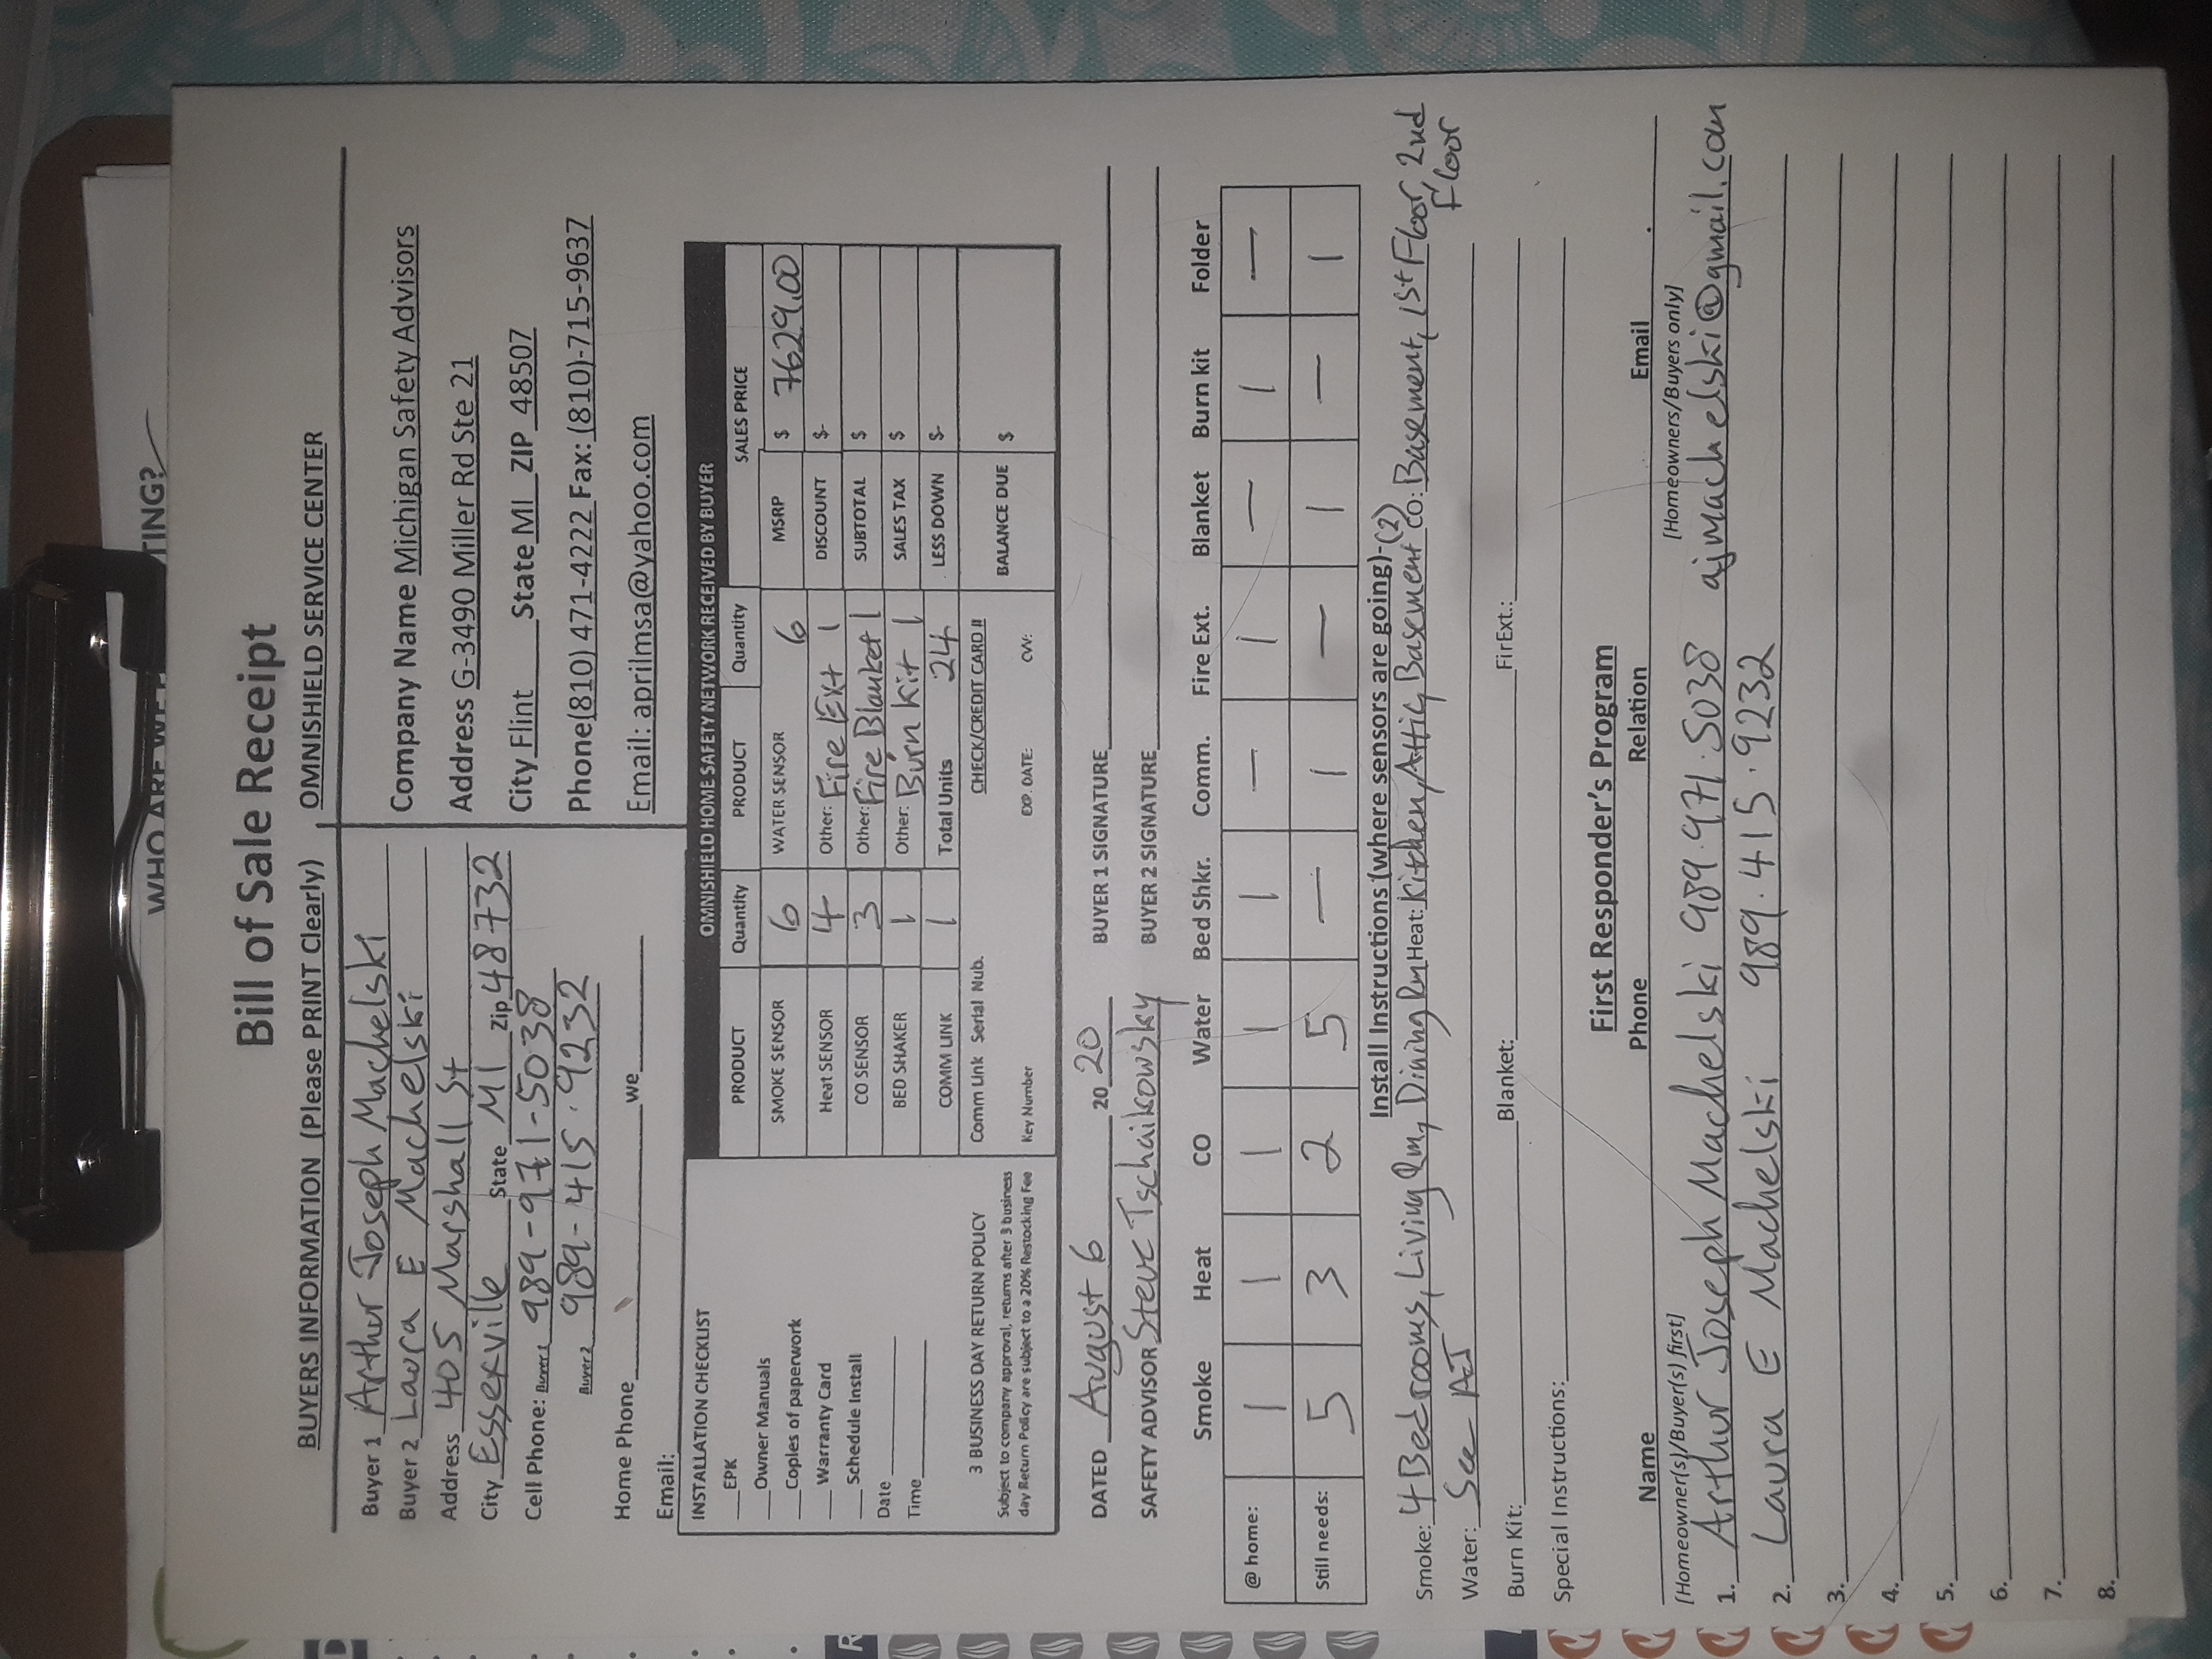 WHO ARE WE TING?
Bill of Sale Receipt
BUYERS INFORMATION (Please PRINT Clearly)
Buyer 1 Arthur Joseph Machelski
Buyer 2 Laura E Machelski
Address 405 Marshall St
City Essexville State MI Zip 48732
Cell Phone: Buyer 1 989-971-5038
Buyer 2 989-415.9232
Home Phone we
Email:
OMNISHIELD SERVICE CENTER
Company Name Michigan Safety Advisors
Address G-3490 Miller Rd Ste 21
City Flint State MI ZIP 48507
Phone(810) 471-4222 Fax: (810)-715-9637
Email: aprilmsa@yahoo.com
INSTALLATION CHECKLIST
___EPK
___Owner Manuals
___Copies of paperwork
___Warranty Card
___Schedule Install
Date
Time
3 BUSINESS DAY RETURN POLICY
Subject to company approval, returns after 3 business
day Return Policy are subject to a 20% Restocking Fee
OMNISHIELD HOME SAFETY NETWORK RECEIVED BY BUYER
PRODUCT Quantity PRODUCT Quantity SALES PRICE
SMOKE SENSOR 6 WATER SENSOR 6 MSRP $ 7629.00
Heat SENSOR 4 Other: Fire Ext 1 DISCOUNT $-
CO SENSOR 3 Other: Fire Blanket 1 SUBTOTAL $
BED SHAKER 1 Other: Burn Kit 1 SALES TAX $
COMM LINK 1 Total Units 24 LESS DOWN $-
Comm Link Serial Nub. CHECK/CREDIT CARD # BALANCE DUE $
Key Number EXP. DATE: CVV:
DATED August 6 20 20 BUYER 1 SIGNATURE
SAFETY ADVISOR Steve Tschaikowsky BUYER 2 SIGNATURE
Smoke Heat CO Water Bed Shkr. Comm. Fire Ext. Blanket Burn kit Folder
@ home: 1 1 1 1 1 — 1 — 1 —
Still needs: 5 3 2 5 — 1 — 1 — 1
Install Instructions (where sensors are going)-(2)
Smoke: 4 Bedrooms, Living Rm, Dining Rm Heat: Kitchen, Attic, Basement CO: Basement, 1st Floor, 2nd Floor
Water: See
Burn Kit: Blanket: FirExt.:
Special Instructions:
First Responder's Program
Name Phone Relation Email
[Homeowner(s)/Buyer(s) first] [Homeowners/Buyers only]
1. Arthur Joseph Machelski 989.971.5038 ajmachelski@gmail.com
2. Laura E Machelski 989.415.9232
3.
4.
5.
6.
7.
8.